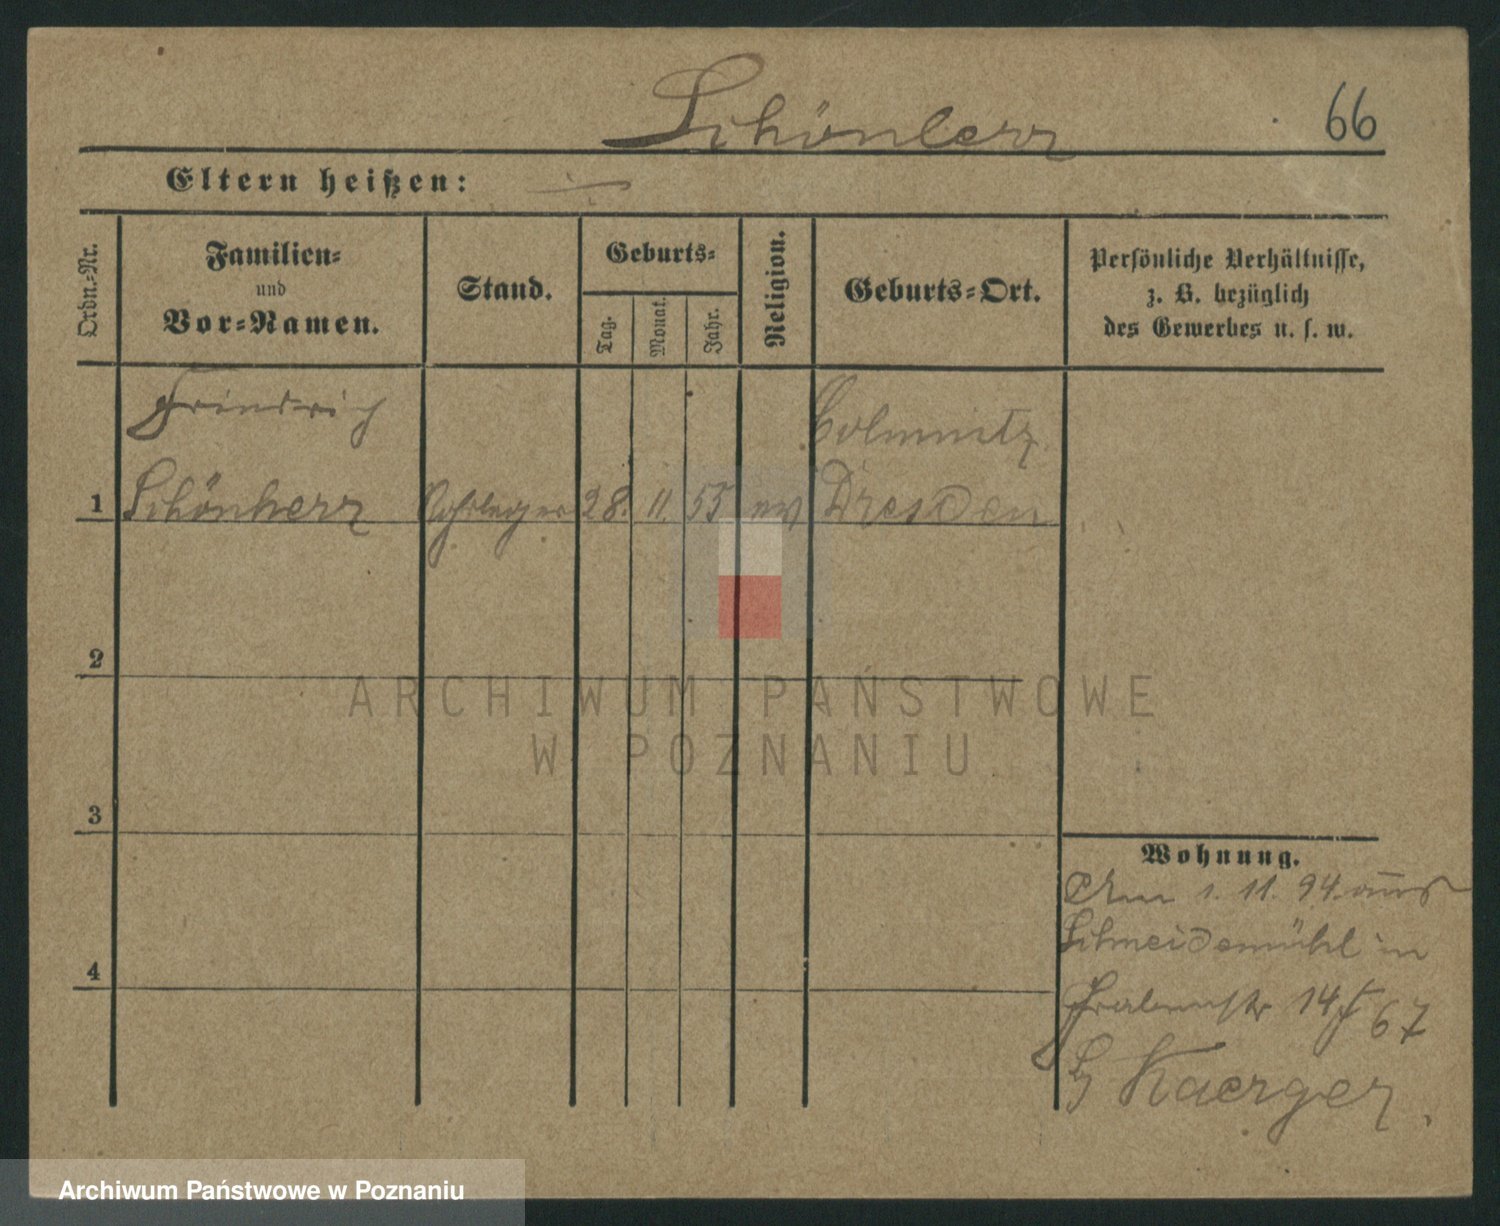 Schönherr 66
Eltern heißen:
Ordn.-Nr. Familien- und Vor-Namen. Stand. Geburts- Tag. Monat. Jahr. Religion. Geburts-Ort. Persönliche Verhältnisse, z. B. bezüglich des Gewerbes u. s. w.
Friedrich Colmnitz
1 Schönherr 28. 11. 55 ev Dresden
2
3
4
Wohnung.
Am 1. 11. 94. aus
Schneidemühl in
14 67
Kaerger
ARCHIWUM PAŃSTWOWE
W POZNANIU
Archiwum Państwowe w Poznaniu